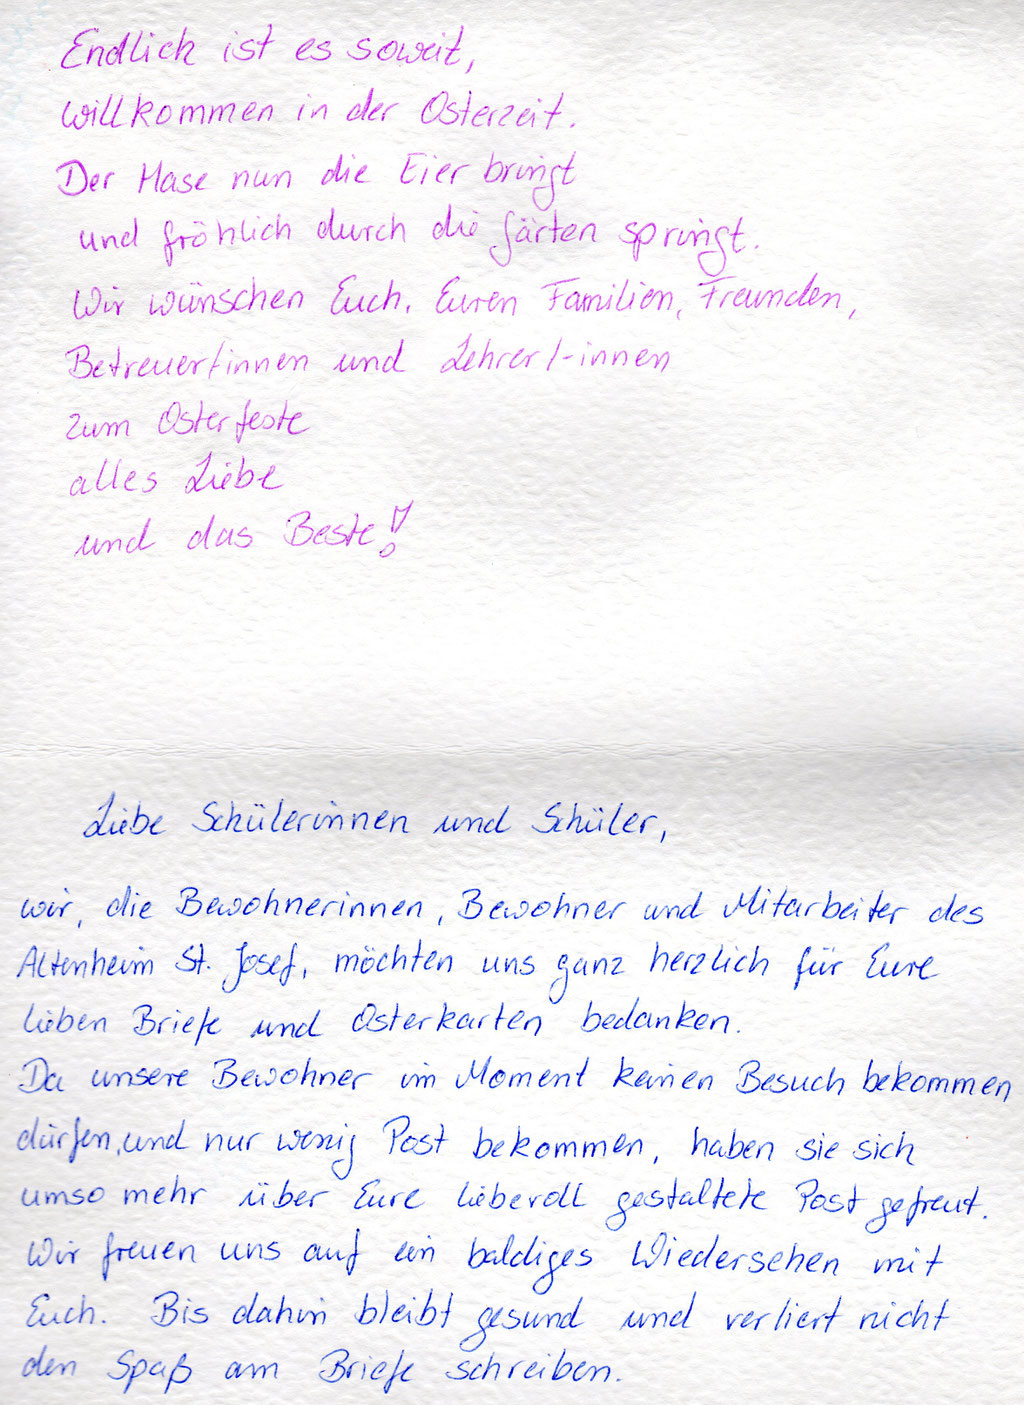 Endlich ist es soweit,
willkommen in der Osterzeit.
Der Hase nun die Eier bringt
und fröhlich durch die Gärten springt.
Wir wünschen Euch, Euren Familien, Freunden,
Betreuer/innen und Lehrer/-innen
zum Osterfeste
alles Liebe
und das Beste!
Liebe Schülerinnen und Schüler,
wir, die Bewohnerinnen, Bewohner und Mitarbeiter des
Altenheim St. Josef, möchten uns ganz herzlich für Eure
lieben Briefe und Osterkarten bedanken.
Da unsere Bewohner im Moment keinen Besuch bekommen
dürfen, und nur wenig Post bekommen, haben sie sich
umso mehr über Eure liebevoll gestaltete Post gefreut.
Wir freuen uns auf ein baldiges Wiedersehen mit
Euch. Bis dahin bleibt gesund und verliert nicht
den Spaß am Briefe schreiben.